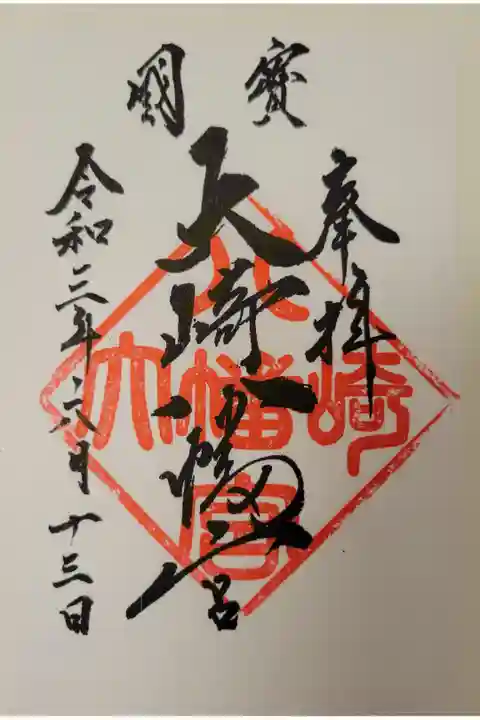 國寳
奉拝
大崎八幡宮
令和三年六月十三日
八
大幡崎
宮